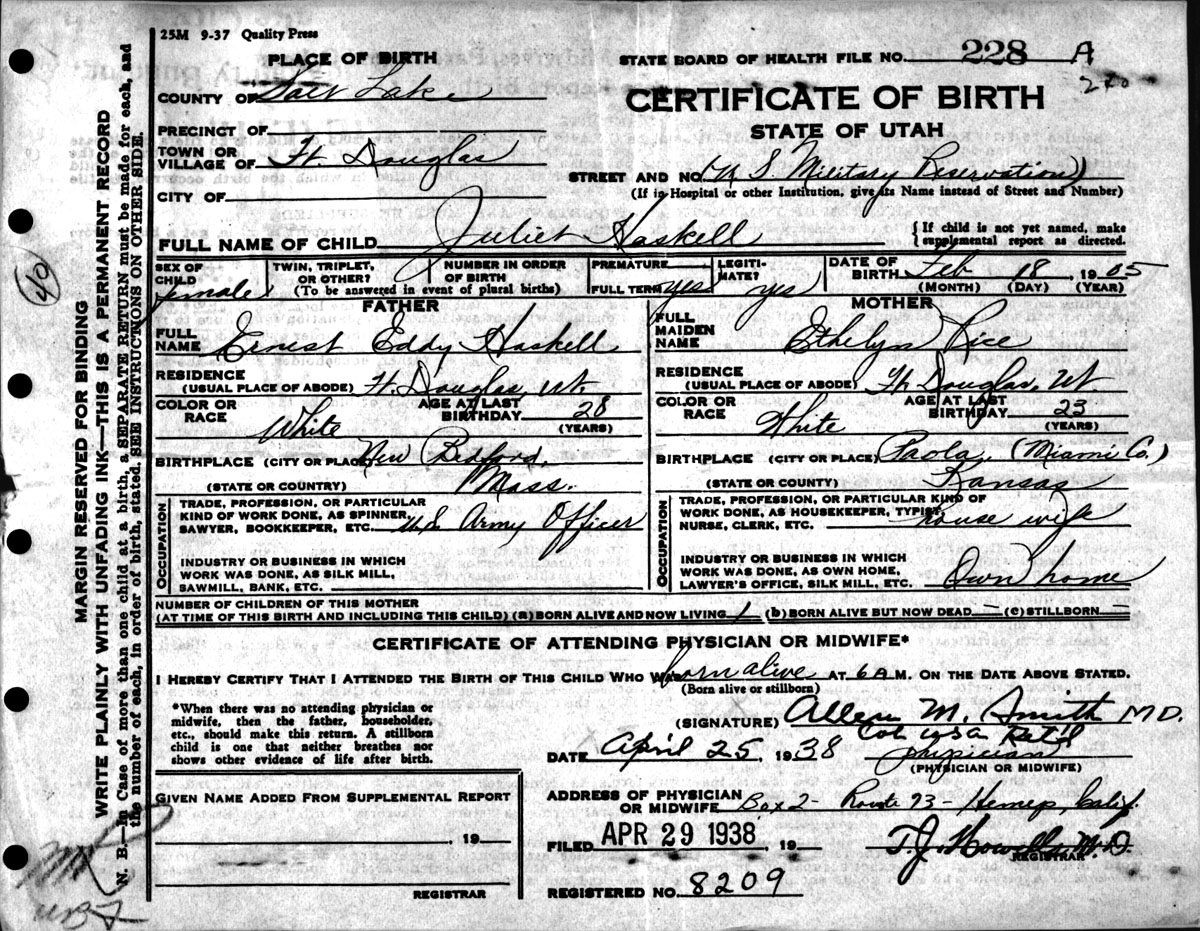 25M 9-37 Quality Press
PLACE OF BIRTH
STATE BOARD OF HEALTH FILE NO. 228 A
240
COUNTY OF Salt Lake
CERTIFICATE OF BIRTH
STATE OF UTAH
PRECINCT OF
TOWN OR VILLAGE OF Ft Douglas
STREET AND NO. (U S Military Reservation)
(If in Hospital or other Institution, give its Name instead of Street and Number)
CITY OF
FULL NAME OF CHILD Juliet Haskell
{If child is not yet named, make supplemental report as directed.
SEX OF CHILD female
TWIN, TRIPLET, OR OTHER?
NUMBER IN ORDER OF BIRTH
(To be answered in event of plural births)
PREMATURE
FULL TERM yes
LEGITIMATE? yes
DATE OF BIRTH Feb 18 1905
(MONTH) (DAY) (YEAR)
FATHER
FULL NAME Ernest Eddy Haskell
RESIDENCE (USUAL PLACE OF ABODE) Ft. Douglas, Ut.
COLOR OR RACE White
AGE AT LAST BIRTHDAY 28 (YEARS)
BIRTHPLACE (CITY OR PLACE) New Bedford,
(STATE OR COUNTRY) Mass.
OCCUPATION
TRADE, PROFESSION, OR PARTICULAR KIND OF WORK DONE, AS SPINNER, SAWYER, BOOKKEEPER, ETC. U.S. Army Officer
INDUSTRY OR BUSINESS IN WHICH WORK WAS DONE, AS SILK MILL, SAWMILL, BANK, ETC.
MOTHER
FULL MAIDEN NAME Ethelyn Rice
RESIDENCE (USUAL PLACE OF ABODE) Ft Douglas, Ut
COLOR OR RACE White
AGE AT LAST BIRTHDAY 23 (YEARS)
BIRTHPLACE (CITY OR PLACE) Paola, (Miami Co.)
(STATE OR COUNTY) Kansas
OCCUPATION
TRADE, PROFESSION, OR PARTICULAR KIND OF WORK DONE, AS HOUSEKEEPER, TYPIST, NURSE, CLERK, ETC. house wife
INDUSTRY OR BUSINESS IN WHICH WORK WAS DONE, AS OWN HOME, LAWYER'S OFFICE, SILK MILL, ETC. Own home
NUMBER OF CHILDREN OF THIS MOTHER
(AT TIME OF THIS BIRTH AND INCLUDING THIS CHILD) (a) BORN ALIVE AND NOW LIVING 1 (b) BORN ALIVE BUT NOW DEAD – (c) STILLBORN –
CERTIFICATE OF ATTENDING PHYSICIAN OR MIDWIFE*
I HEREBY CERTIFY THAT I ATTENDED THE BIRTH OF THIS CHILD WHO WAS born alive AT 6 A M. ON THE DATE ABOVE STATED.
(Born alive or stillborn)
*When there was no attending physician or
midwife, then the father, householder,
etc., should make this return. A stillborn
child is one that neither breathes nor
shows other evidence of life after birth.
(SIGNATURE) Allen M. Smith MD.
Col USA Ret'd
DATE April 25, 1938 physician
(PHYSICIAN OR MIDWIFE)
GIVEN NAME ADDED FROM SUPPLEMENTAL REPORT
, 19
REGISTRAR
ADDRESS OF PHYSICIAN OR MIDWIFE Box 2 - Route 93 - Calif.
FILED APR 29 1938, 19 T. J. Howells, M.D.
REGISTRAR.
REGISTERED NO. 8209
MARGIN RESERVED FOR BINDING
WRITE PLAINLY WITH UNFADING INK—THIS IS A PERMANENT RECORD
N. B.—In Case of more than one child at a birth, a SEPARATE RETURN must be made for each, and
the number of each, in order of birth, stated. SEE INSTRUCTIONS ON OTHER SIDE.
40